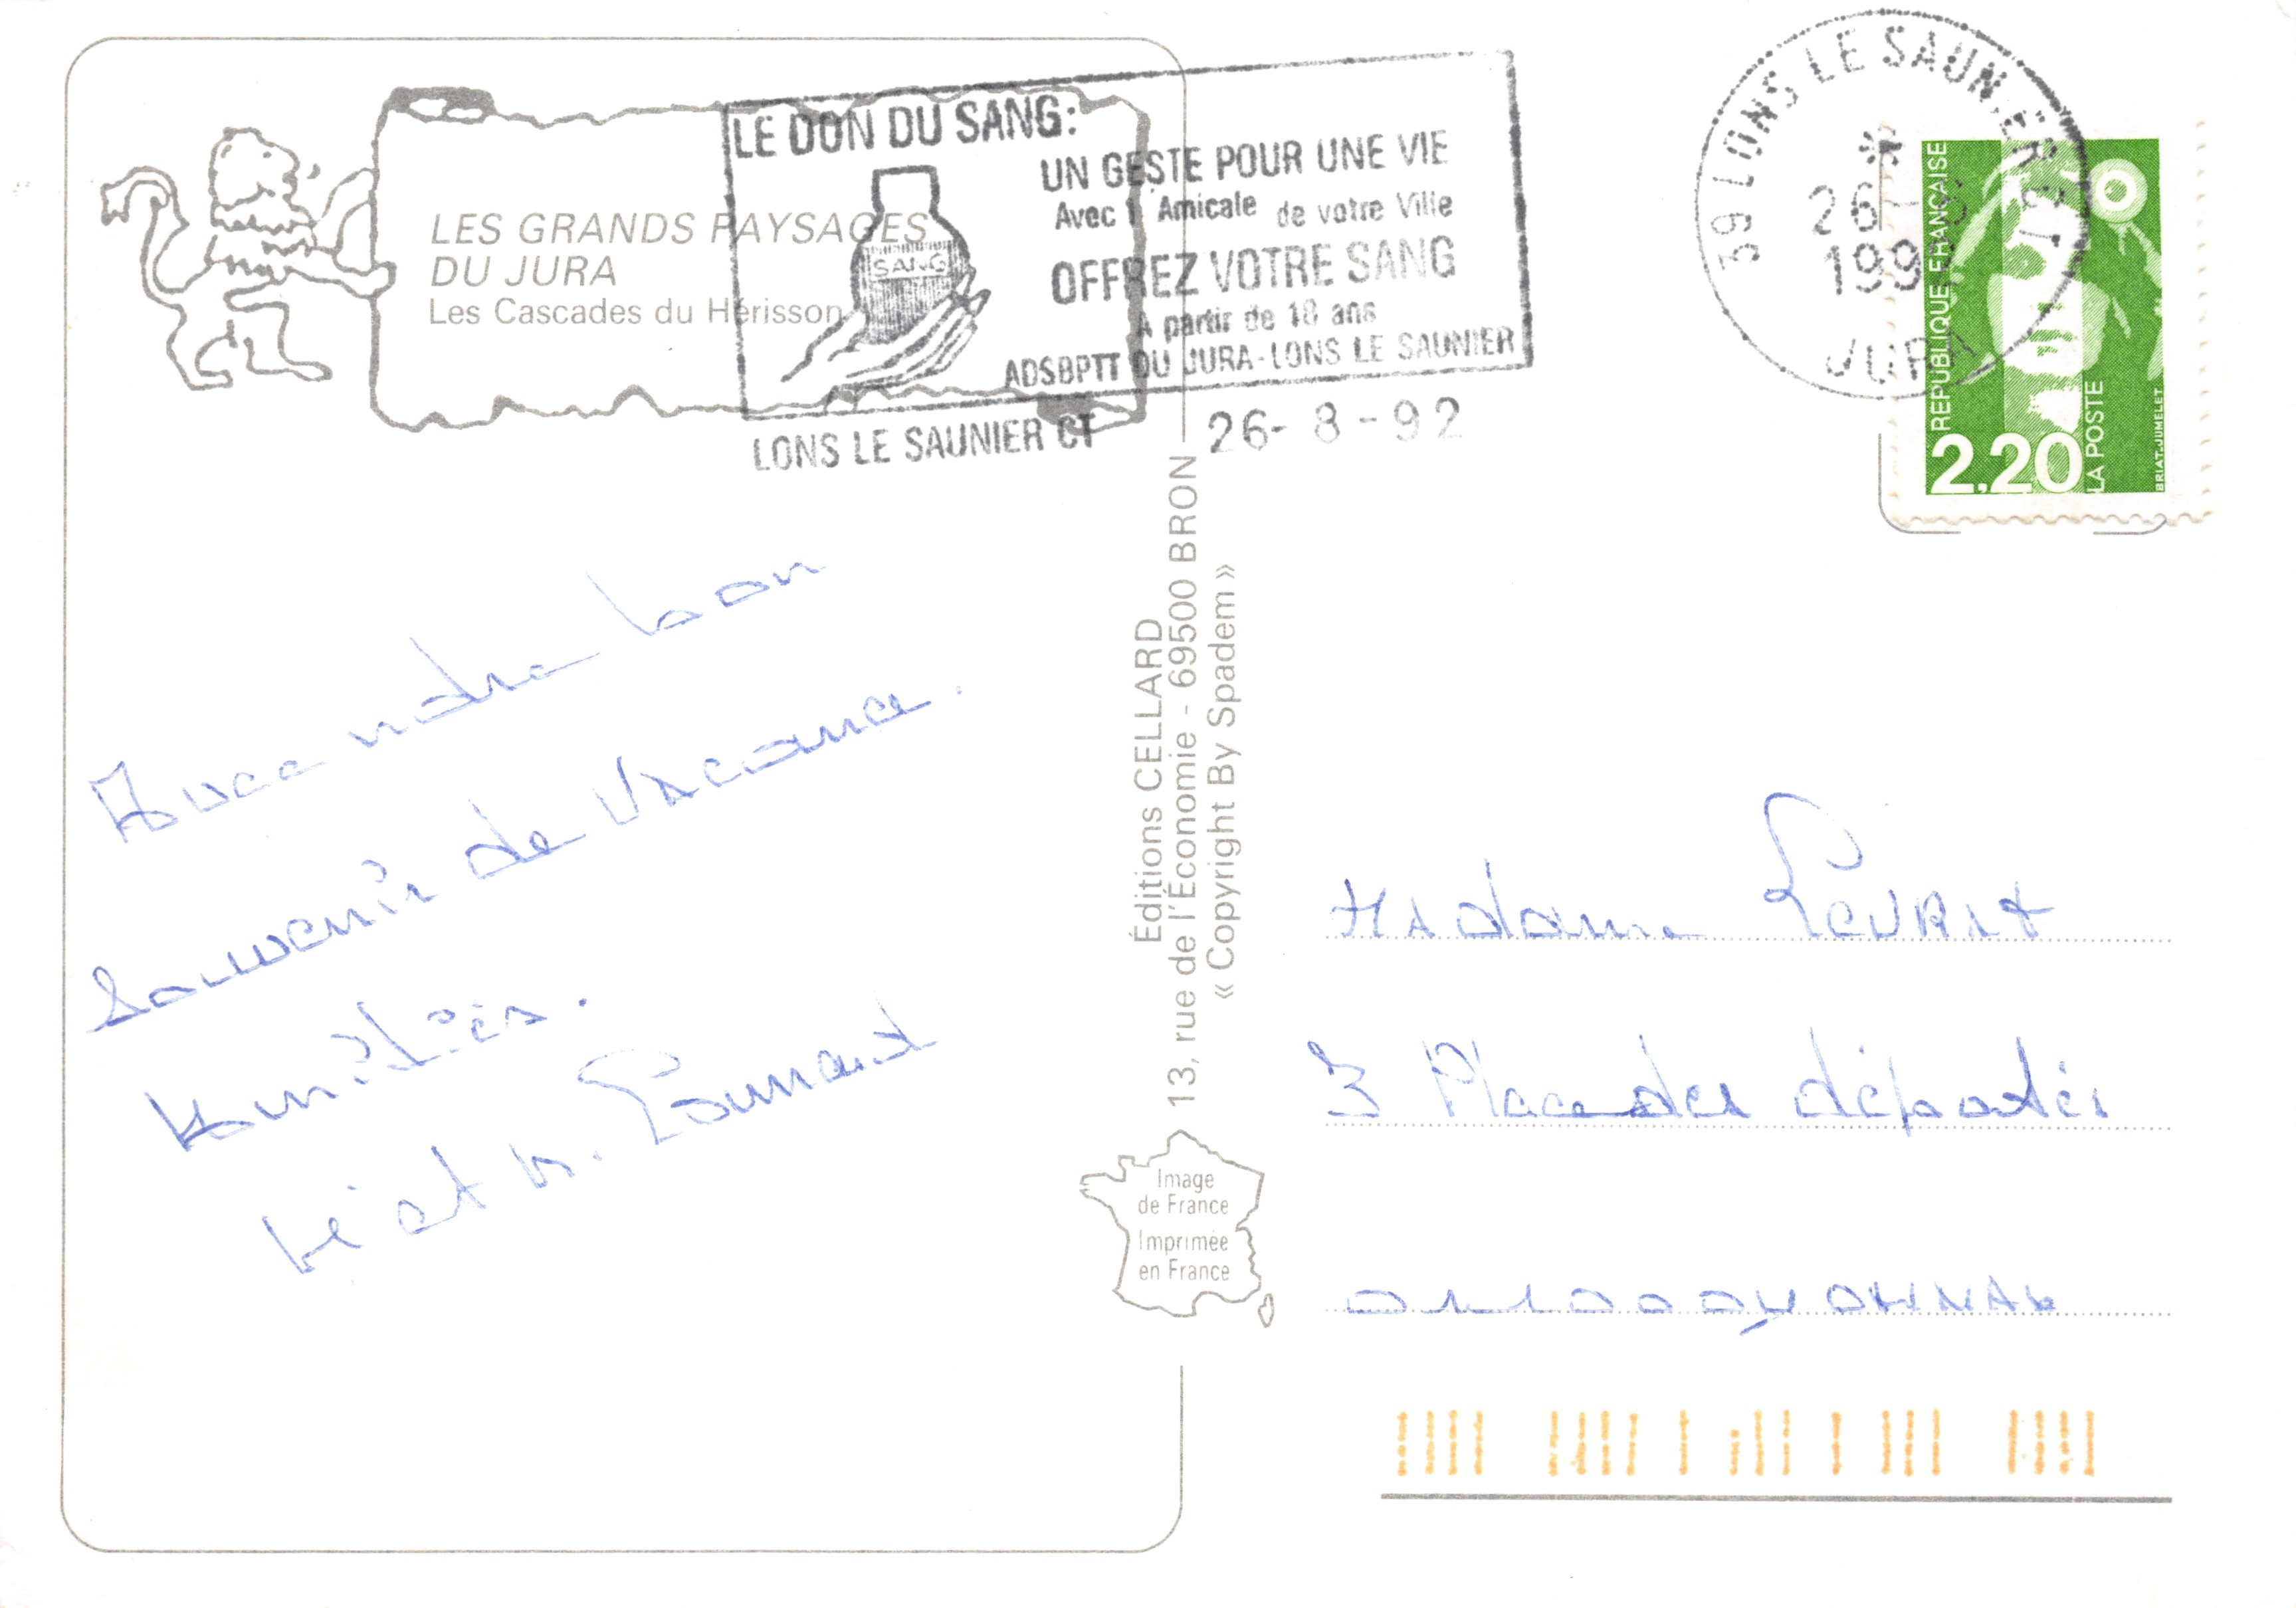 LES GRANDS PAYSAGES
DU JURA
Les Cascades du Hérisson
LE DON DU SANG:
SANG
UN GESTE POUR UNE VIE
Avec l'Amicale de votre Ville
OFFREZ VOTRE SANG
A partir de 18 ans
ADSBPTT DU JURA-LONS LE SAUNIER
LONS LE SAUNIER CT 26-8-92
39 LONS LE SAUNIER CT
26
199
JURA
REPUBLIQUE FRANÇAISE
2,20
LA POSTE
BRIAT.JUMELET
Avec notre bon
souvenir de Vacance.
Amitiés.
et M.
Éditions CELLARD
13, rue de l'Économie - 69500 BRON
« Copyright By Spadem »
Image
de France
Imprimée
en France
Madame
3 Place des déportés
01100 OYONNAX